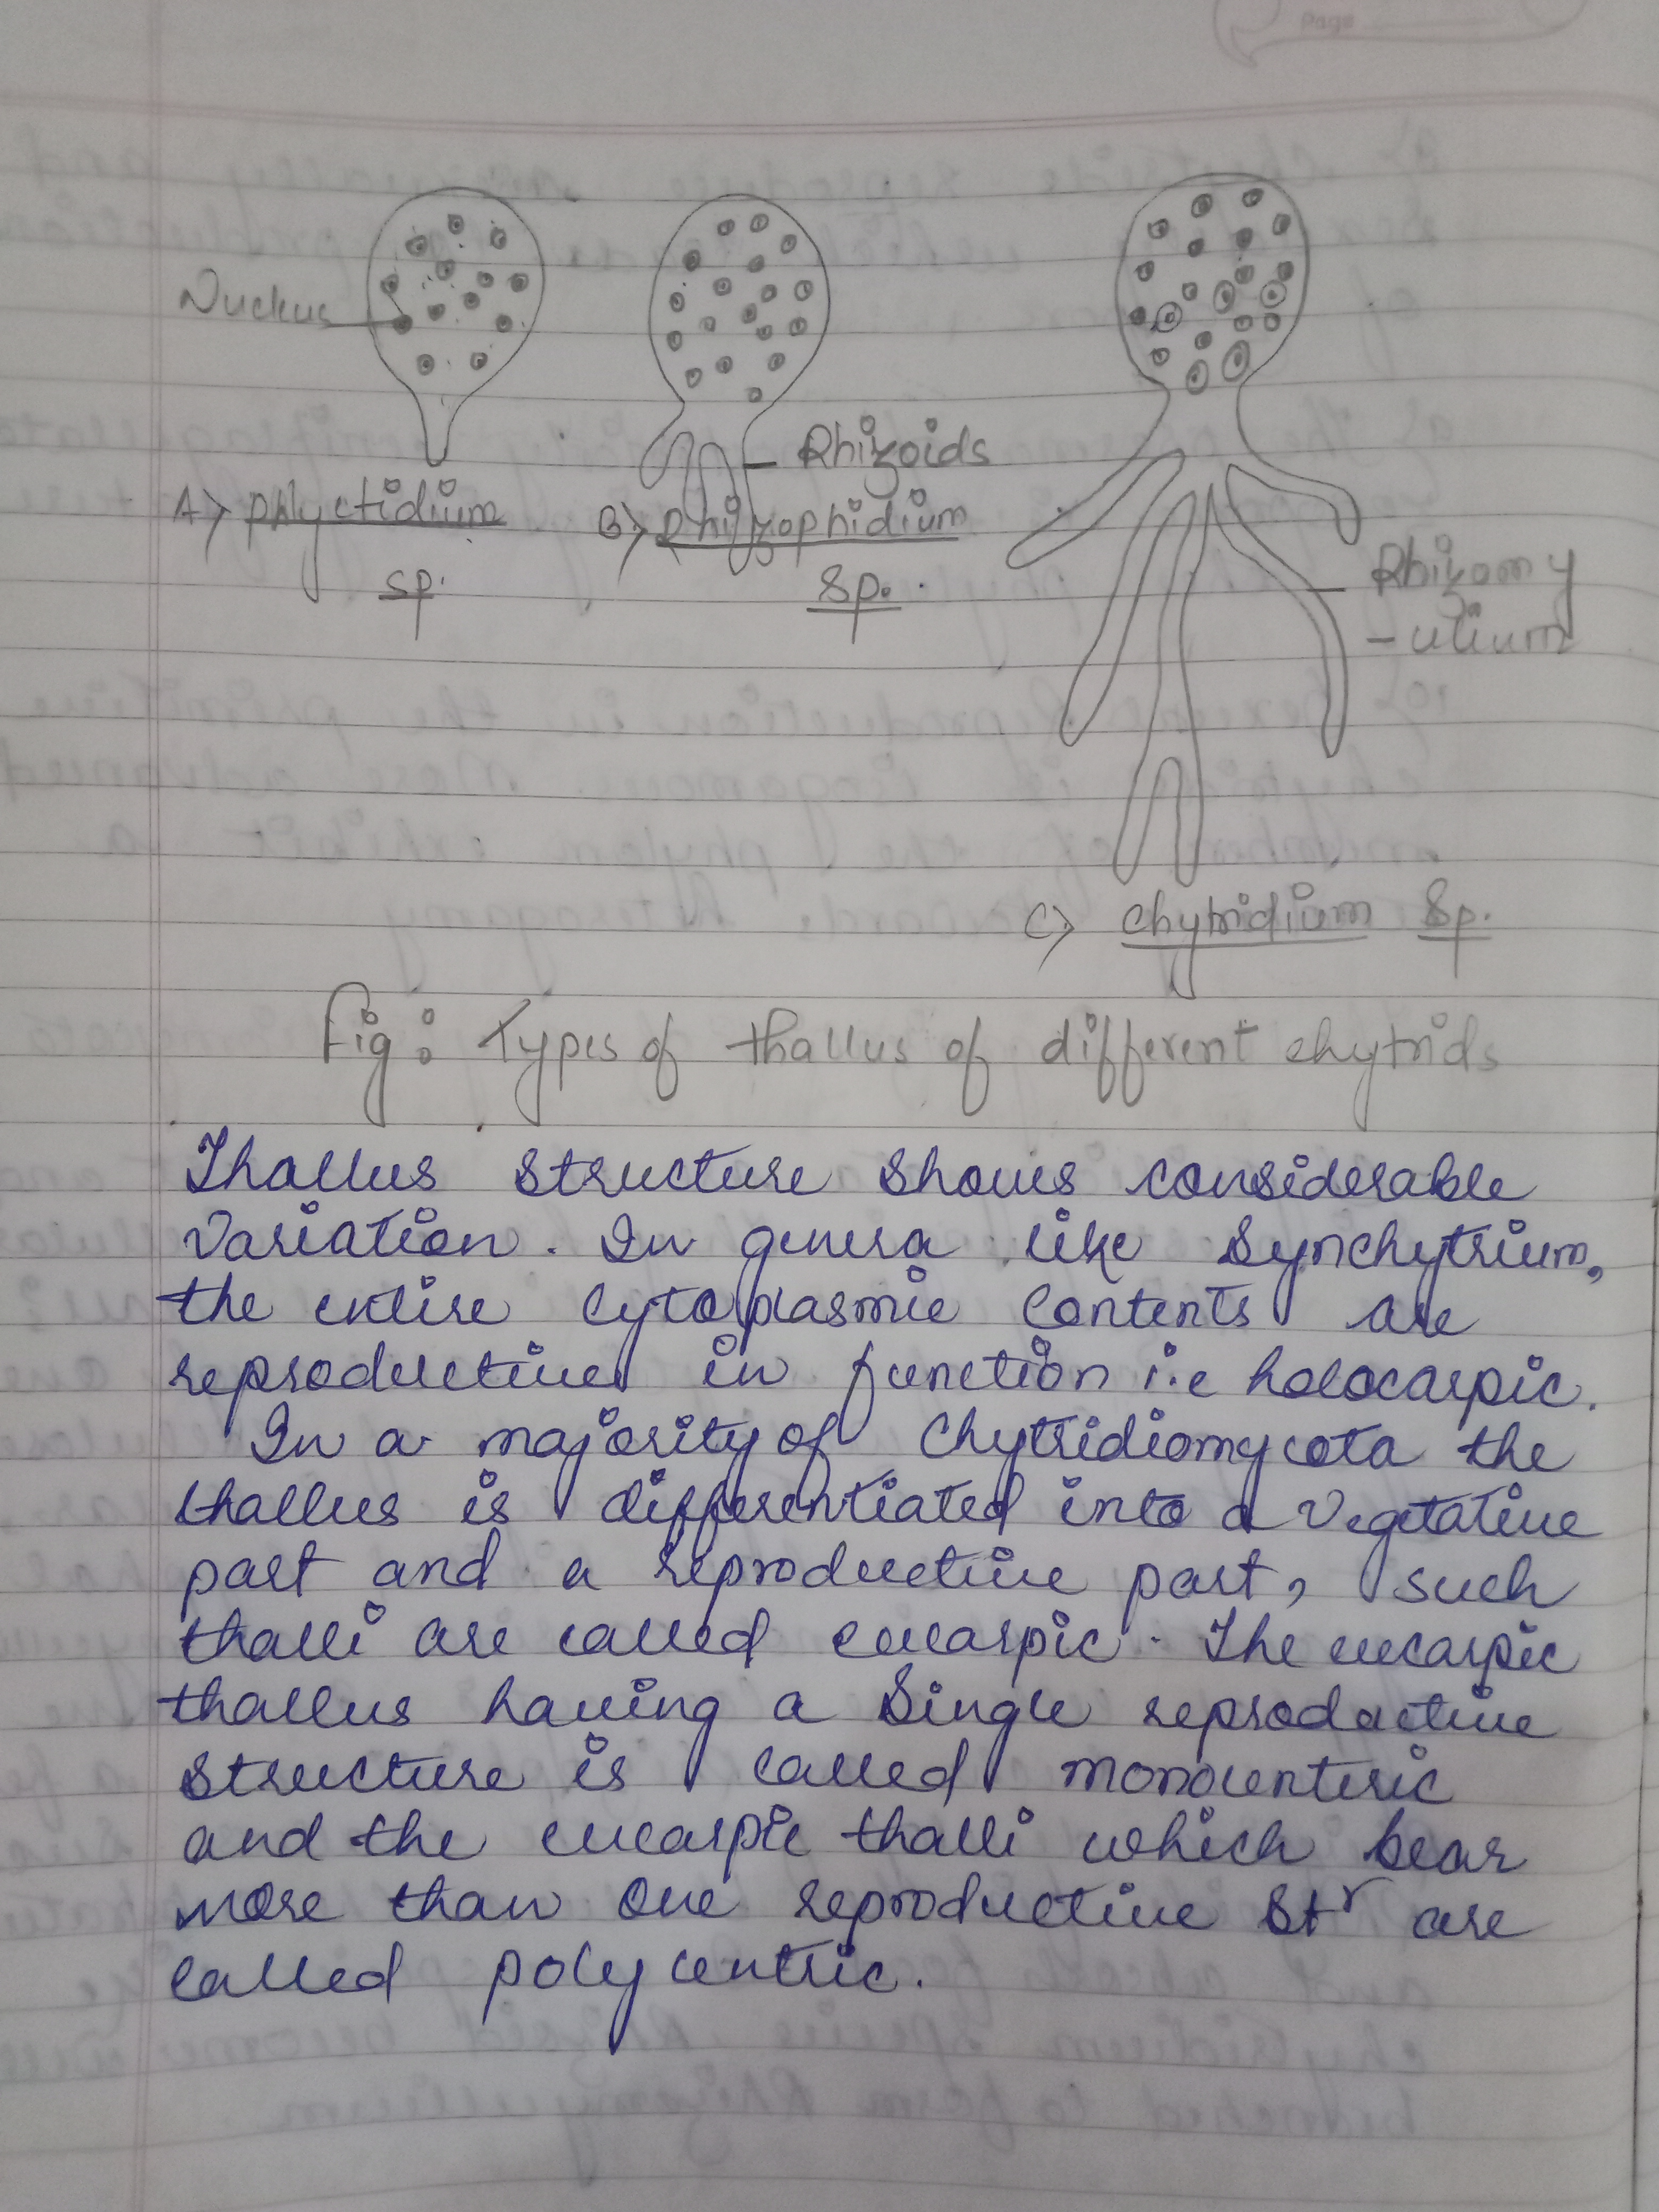 Page
Nucleus
Rhizoids
A) phlyctidium
sp.
B) Rhizophidium
Sp.
Rhizomy
-celium
C) chytridium Sp.
Fig: Types of thallus of different chytrids
Thallus structure shows considerable
variation. In genera like Synchytrium,
the entire cytoplasmic contents are
reproductive in function i.e holocarpic.
In a majority of Chytridiomycota the
thallus is differentiated into a vegetative
part and a reproductive part, such
thalli are called eucarpic. The eucarpic
thallus having a single reproductive
structure is called monocenteric
and the eucarpic thalli which bear
more than one reproductive Str are
called polycentric.